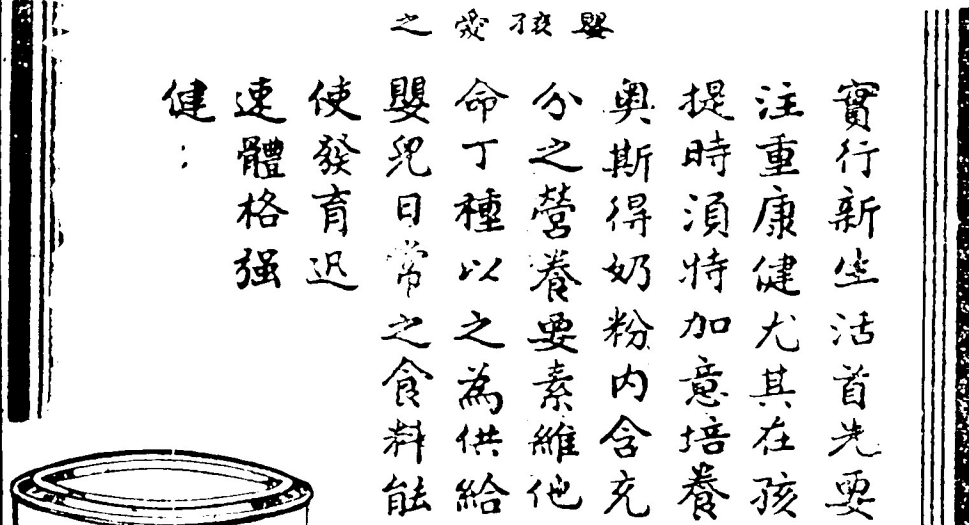 嬰孩之
實行新生活首先要
注重康健尤其在孩
提時須特加意培養
奥斯得奶粉内含充
分之營養要素維他
命丁種以之為供給
嬰兒日常之食料能
使發育迅
速體格强
健：